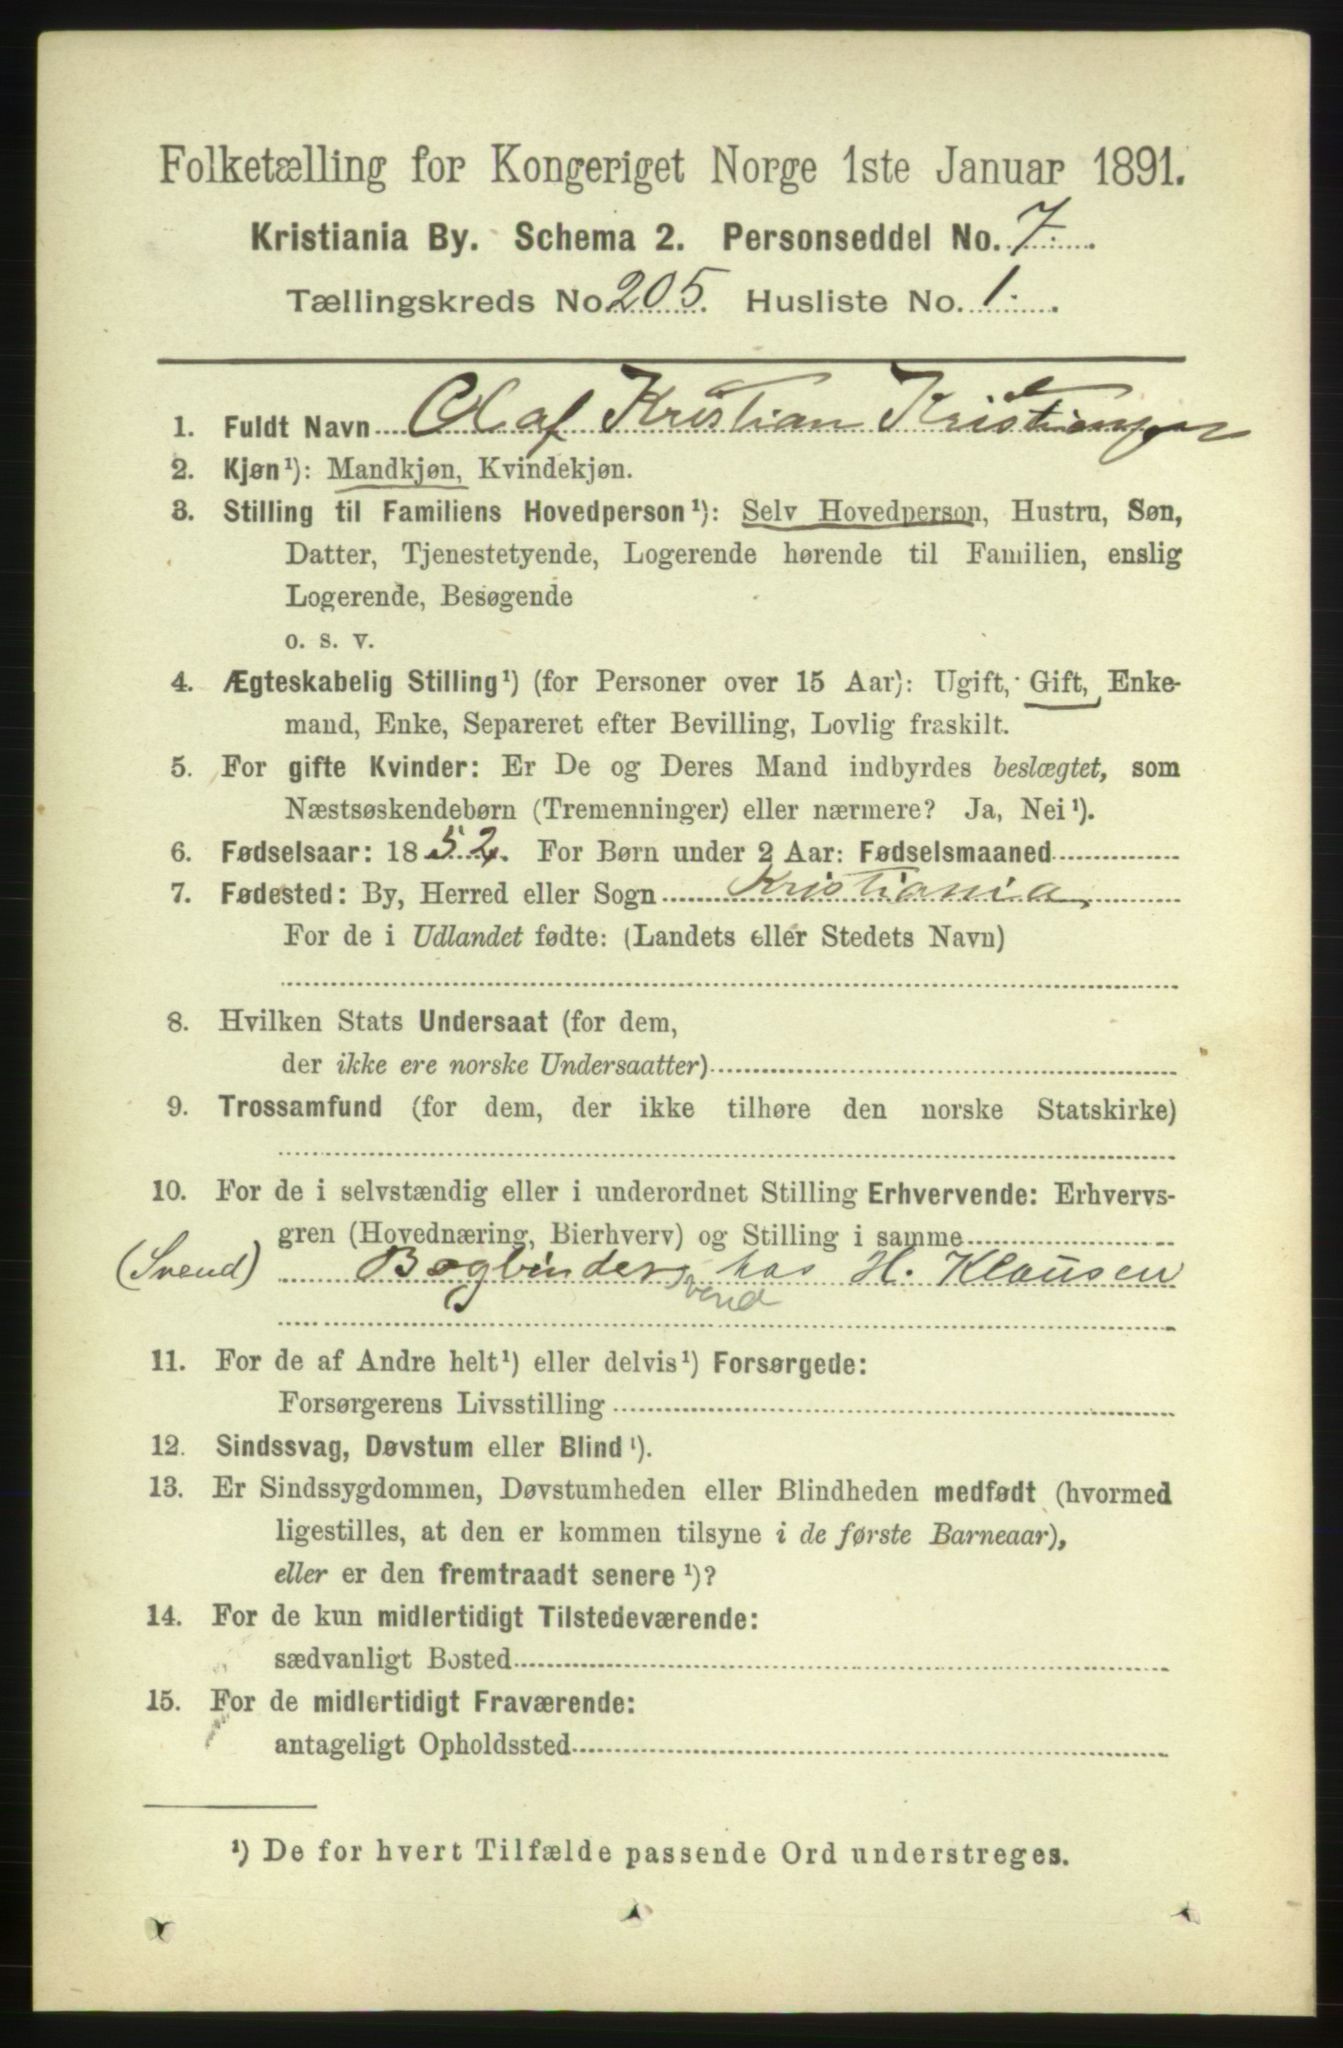 Folketælling for Kongeriget Norge 1ste Januar 1891.
Kristiania By. Schema 2. Personseddel No. 7.
Tællingskreds No. 205. Husliste No. 1.
1. Fuldt Navn Olaf Kristian Kristiansen
2. Kjøn¹): Mandkjøn, Kvindekjøn.
3. Stilling til Familiens Hovedperson¹): Selv Hovedperson, Hustru, Søn,
Datter, Tjenestetyende, Logerende hørende til Familien, enslig
Logerende, Besøgende
o. s. v.
4. Ægteskabelig Stilling¹) (for Personer over 15 Aar): Ugift, Gift, Enke-
mand, Enke, Separeret efter Bevilling, Lovlig fraskilt.
5. For gifte Kvinder: Er De og Deres Mand indbyrdes beslægtet, som
Næstsøskendebørn (Tremenninger) eller nærmere? Ja, Nei¹).
6. Fødselsaar: 1852. For Børn under 2 Aar: Fødselsmaaned
7. Fødested: By, Herred eller Sogn Kristiania.
For de i Udlandet fødte: (Landets eller Stedets Navn)
8. Hvilken Stats Undersaat (for dem,
der ikke ere norske Undersaatter)
9. Trossamfund (for dem, der ikke tilhøre den norske Statskirke)
10. For de i selvstændig eller i underordnet Stilling Erhvervende: Erhvervs-
gren (Hovednæring, Bierhverv) og Stilling i samme
(Svend) Bogbinder hos H. Klausen
svend
11. For de af Andre helt¹) eller delvis¹) Forsørgede:
Forsørgerens Livsstilling
12. Sindssvag, Døvstum eller Blind¹).
13. Er Sindssygdommen, Døvstumheden eller Blindheden medfødt (hvormed
ligestilles, at den er kommen tilsyne i de første Barneaar),
eller er den fremtraadt senere¹)?
14. For de kun midlertidigt Tilstedeværende:
sædvanligt Bosted
15. For de midlertidigt Fraværende:
antageligt Opholdssted
¹) De for hvert Tilfælde passende Ord understreges.